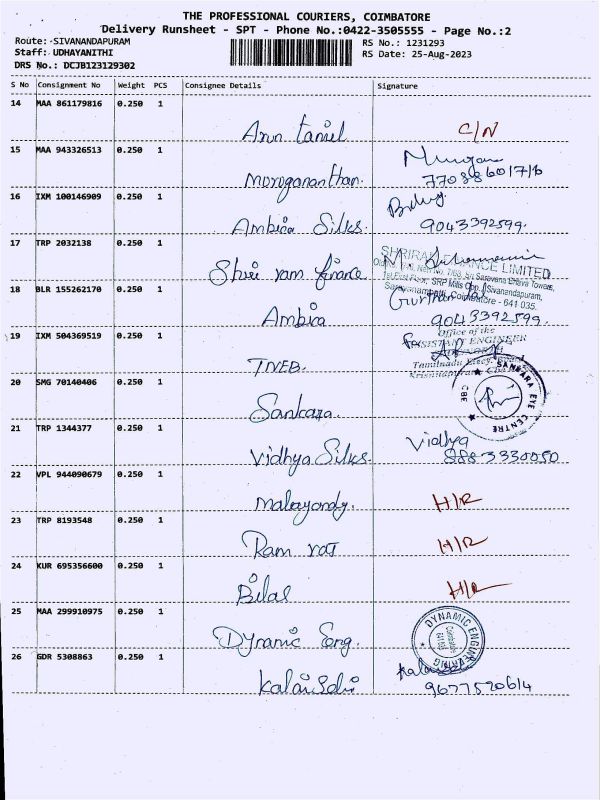 THE PROFESSIONAL COURIERS, COIMBATORE
Delivery Runsheet - SPT - Phone No.:0422-3505555 - Page No.:2
Route:-SIVANANDAPURAM
RS No.: 1231293
Staff: UDHAYANITHI
RS Date: 25-Aug-2023
DRS No.: DCJB123129302
S No Consignment No Weight PCS Consignee Details Signature
14 MAA 861179816 0.250 1
Arun C/N
15 MAA 943326513 0.250 1
Moroganonthan. Murugan
16 IXM 100146909 0.250 1
Ambica Silks 9043392599.
17 TRP 2032138 0.250 1
Shri ram finance
SHRIRAM FINANCE LIMITED
18 BLR 155262170 0.250 1
Saravanampatti, Coimbatore - 641 035.
Ambica 9043392599.
19 IXM 504369519 0.250 1
Office of the
ASSISTANT ENGINEER
TNEB.
20 SMG 70140406 0.250 1
SANKARA EYE CENTRE
CBE
Sankara.
21 TRP 1344377 0.250 1
Vidhya Silks Vidhya
22 VPL 944090679 0.250 1
Malayandy. H/R
23 TRP 8193548 0.250 1
Ram H/R
24 KUR 695356600 0.250 1
Bilal H/R
25 MAA 299910975 0.250 1
DYNAMIC ENGINEERING
Coimbatore
Dynamic Eng.
26 GDR 5308863 0.250 1
Kalaiselvi 9677520614